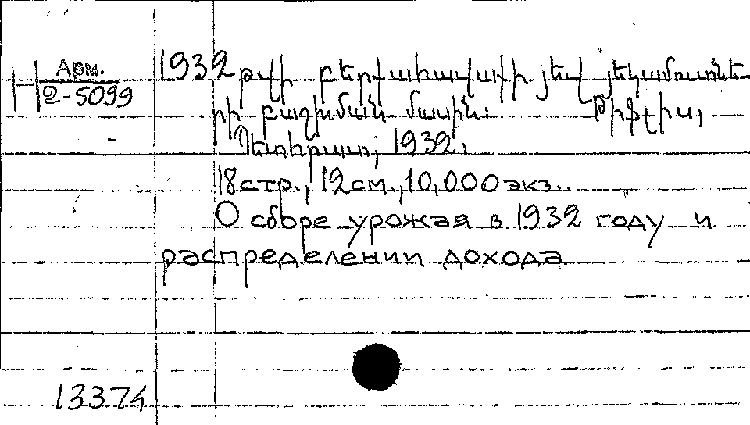 Арм.
2-5099
1932 թվի բերքահավաքի յեվ յեկամուտնե
րի բաշխման մասին: Թիֆլիս,
Պետհրատ, 1932.
18 стр., 12 см., 10,000 экз.
О сборе урожая в 1932 году и
распределении дохода
13374